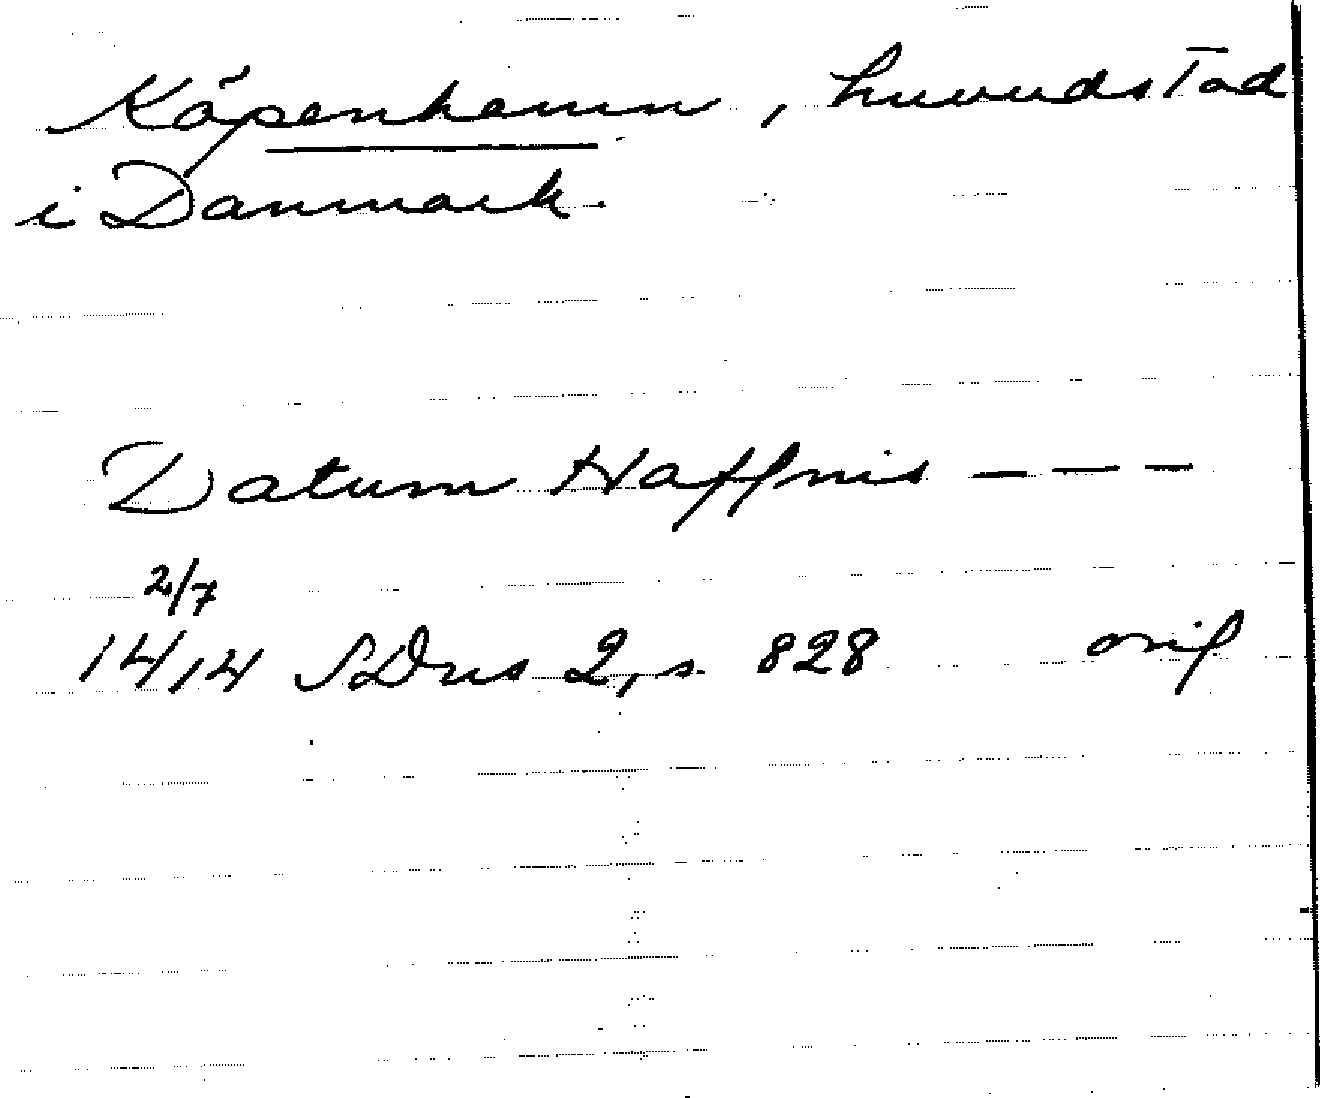 Köpenhamn, huvudstad
i Danmark.
Datum Haffnis ---
2/7
14/14 SDns 2, s. 828 orig